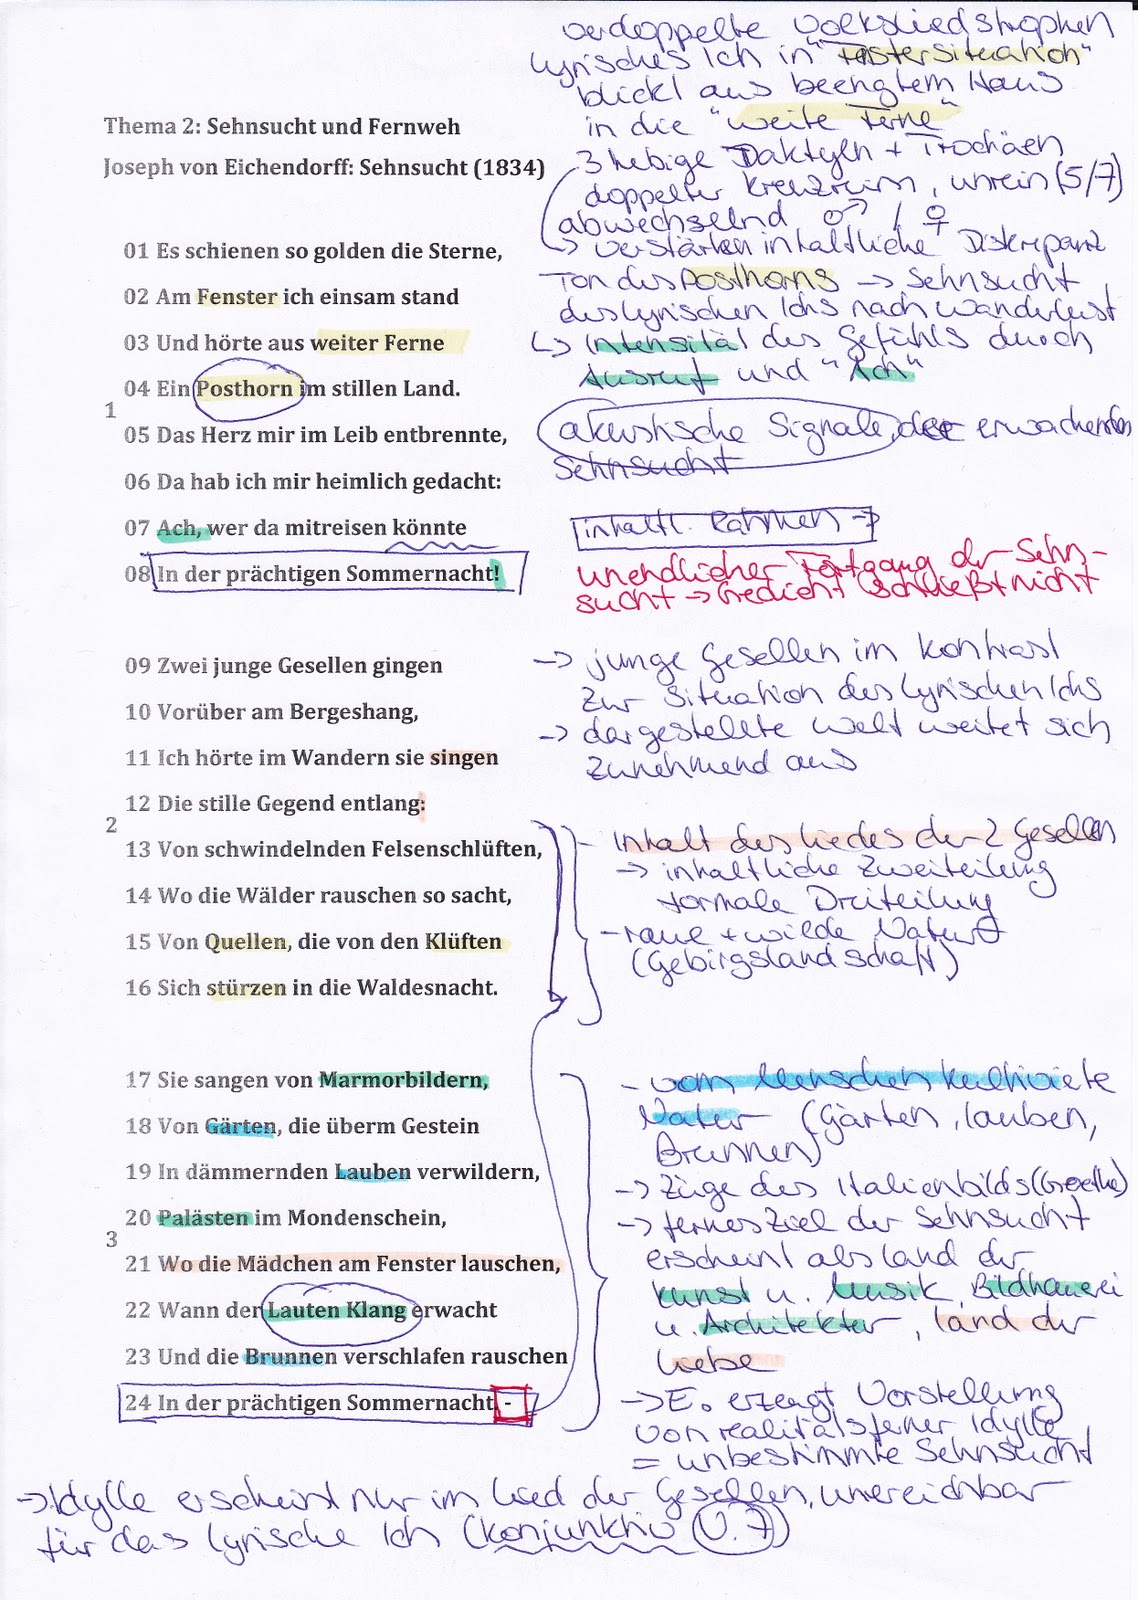 verdoppelte Volksliedstrophen
lyrisches Ich in "Fenstersituation"
blickt aus beengtem Haus
in die "weite Ferne"
Thema 2: Sehnsucht und Fernweh
Joseph von Eichendorff: Sehnsucht (1834)
3 hebige Daktylen + Trochäen
doppelter Kreuzreim, unrein (5/7)
abwechselnd ♂ / ♀
-> verstärken inhaltliche Diskrepanz
Ton des Posthorns -> Sehnsucht
des lyrischen Ichs nach Wanderlust
↳ Intensität des Gefühls durch
Ausruf und "Ach"
akustische Signale, der erwachenden
Sehnsucht
1
01 Es schienen so golden die Sterne,
02 Am Fenster ich einsam stand
03 Und hörte aus weiter Ferne
04 Ein Posthorn im stillen Land.
05 Das Herz mir im Leib entbrennte,
06 Da hab ich mir heimlich gedacht:
07 Ach, wer da mitreisen könnte
08 In der prächtigen Sommernacht!
inhaltl. Rahmen ->
unendlicher Fortgang der Sehn-
sucht -> Gedicht schließt nicht
2
09 Zwei junge Gesellen gingen
10 Vorüber am Bergeshang,
11 Ich hörte im Wandern sie singen
12 Die stille Gegend entlang:
13 Von schwindelnden Felsenschlüften,
14 Wo die Wälder rauschen so sacht,
15 Von Quellen, die von den Klüften
16 Sich stürzen in die Waldesnacht.
-> junge Gesellen im Kontrast
zur Situation des lyrischen Ichs
-> dargestellte Welt weitet sich
zunehmend aus
- Inhalt des Liedes der 2 Gesellen
-> inhaltliche Zweiteilung
formale Dreiteilung
- raue + wilde Natur
(Gebirgslandschaft)
3
17 Sie sangen von Marmorbildern,
18 Von Gärten, die überm Gestein
19 In dämmernden Lauben verwildern,
20 Palästen im Mondenschein,
21 Wo die Mädchen am Fenster lauschen,
22 Wann der Lauten Klang erwacht
23 Und die Brunnen verschlafen rauschen
24 In der prächtigen Sommernacht. -
- vom Menschen kultivierte
Natur (Gärten, Lauben,
Brunnen)
-> Züge des Italienbilds (Goethe)
-> fernes Ziel der Sehnsucht
erscheint als Land der
Kunst u. Musik, Bildhauerei
u. Architektur, Land der
Liebe
-> E. erzeugt Vorstellung
von realitätsferner Idylle
= unbestimmte Sehnsucht
-> Idylle erscheint nur im Lied der Gesellen, unereichbar
für das lyrische Ich (Konjunktiv V. 7)